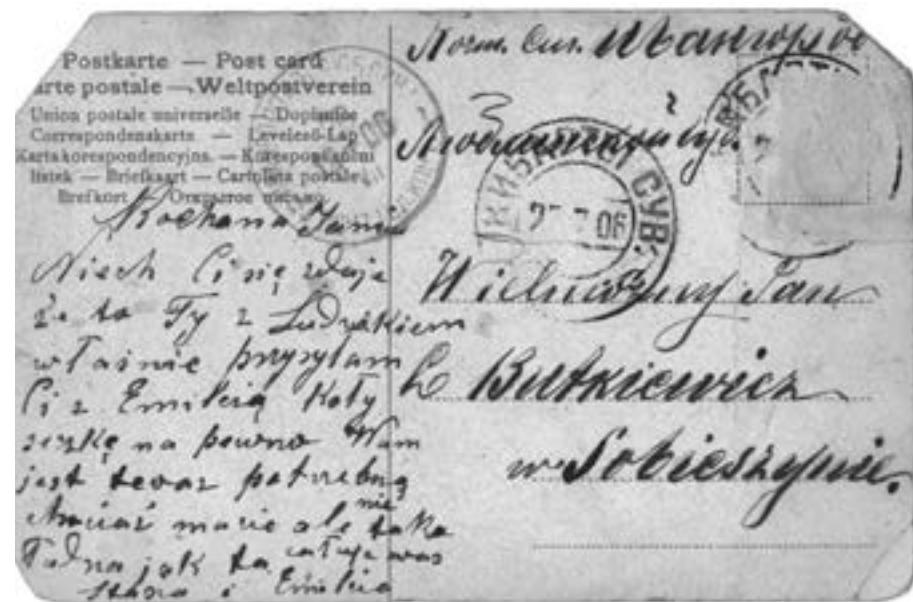 Postkarte — Post card
arte postale — Weltpostverein
Union postale universelle — Dopisnice
Correspondenzkarte — Levelező-Lap
Karta korespondencyjna. — Korespondenční
listek — Briefkaart — Cartolina postale
Brefkort — Открытое письмо
Kochana Janiu
Niech Ci się zdaje
że to Ty z Ludwikiem
właśnie przysyłam
Ci z Emilcią Koły
seczkę na pewno Wam
jest teraz potrzebną
chociaż macie ale nie taka
ładna jak ta całuję was
Stasia i Emilcia
06
СУВ.
06
Wielmożny Pan
L Butkiewicz
w Sobieszynie.